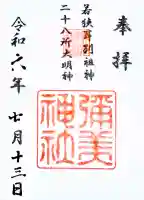 奉拝
若狭耳別祖神
二十八所大明神
彌美神社
令和六年 七月十三日